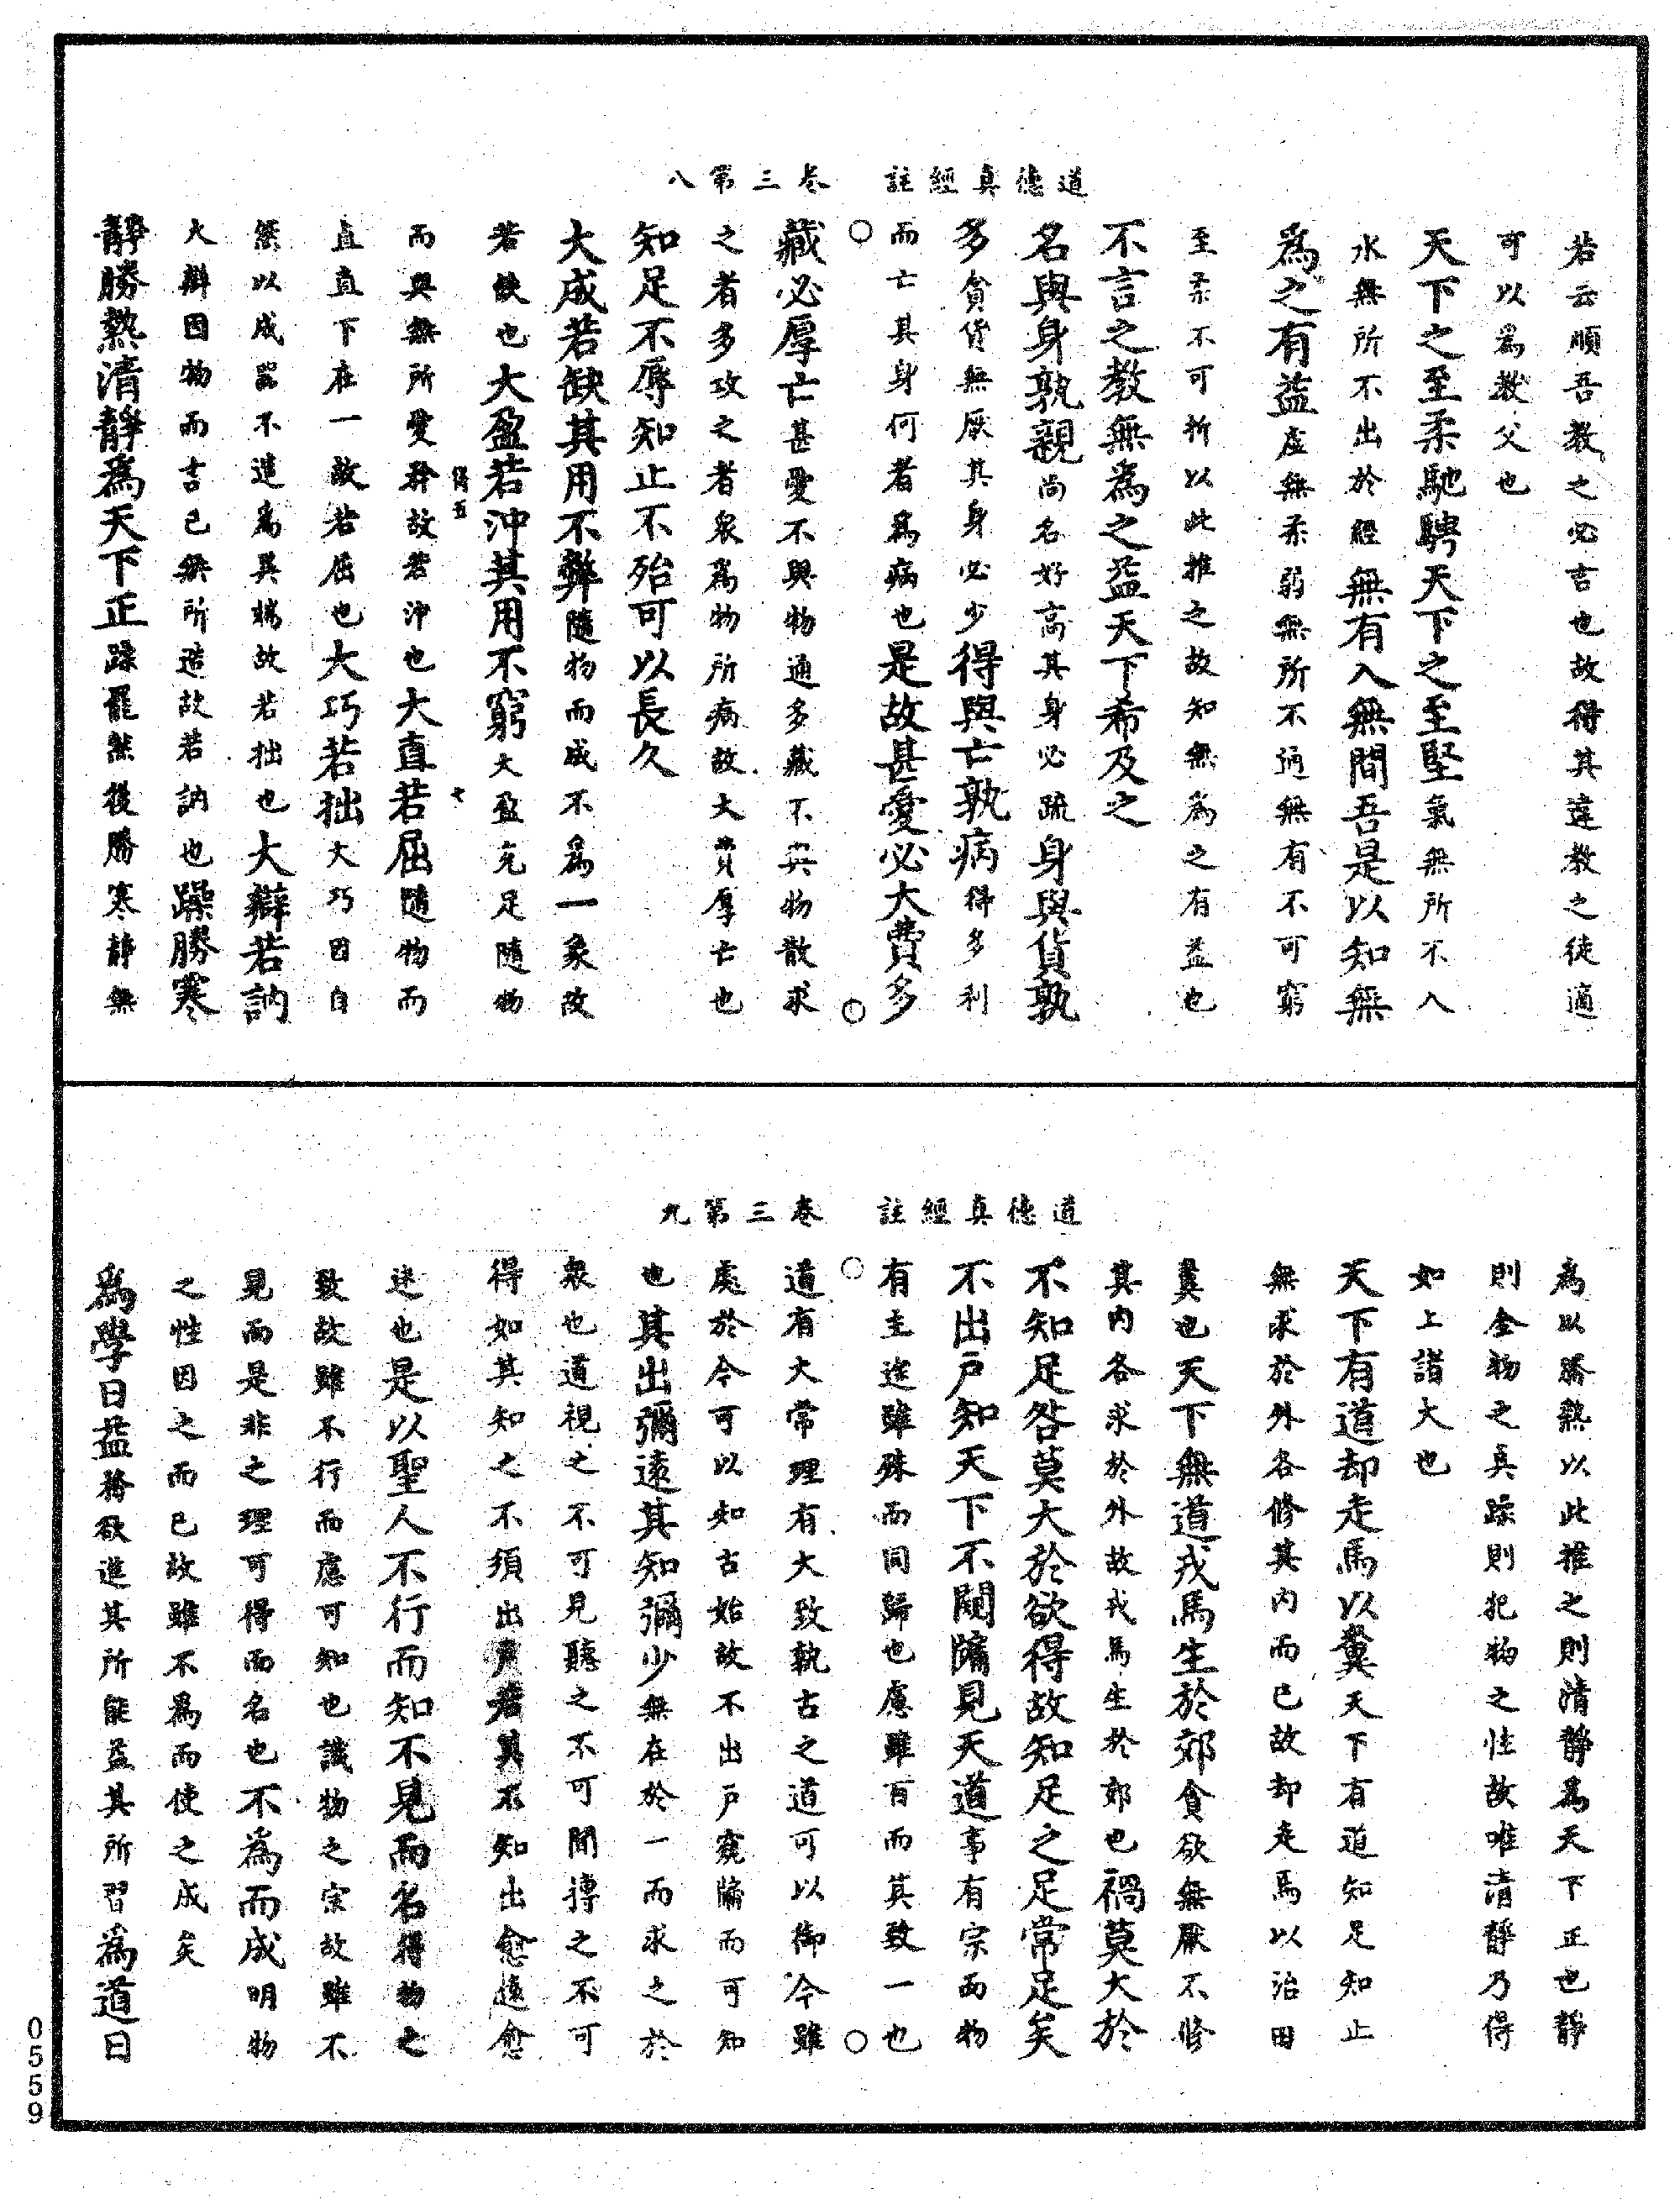 道德真經註　卷三第八
若云順吾教之必吉也故得其違教之徒適
可以爲教父也
天下之至柔馳騁天下之至堅氣無所不入
水無所不出於經無有入無間吾是以知無
爲之有益虛無柔弱無所不通無有不可窮
至柔不可折以此推之故知無爲之有益也
不言之教無爲之益天下希及之
名與身孰親尚名好高其身必疏身與貨孰
多貪貨無厭其身必少得與亡孰病得多利
而亡其身何者爲病也是故甚愛必大費多
藏必厚亡甚愛不與物通多藏不與物散求
之者多攻之者衆爲物所病故大費厚亡也
知足不辱知止不殆可以長久
大成若缺其用不弊隨物而成不爲一象故
若缺也大盈若沖其用不窮大盈充足隨物
而與無所愛矜故若沖也大直若屈隨物而
直直下在一故若屈也大巧若拙大巧因自
然以成器不造爲異端故若拙也大辯若訥
大辯因物而言已無所造故若訥也躁勝寒
靜勝熱清靜爲天下正躁罷然後勝寒靜無
道德真經註　卷三第九
爲以勝熱以此推之則清靜爲天下正也靜
則全物之真躁則犯物之性故唯清靜乃得
如上諸大也
天下有道却走馬以糞天下有道知足知止
無求於外各修其內而已故却走馬以治田
糞也天下無道戎馬生於郊貪欲無厭不修
其內各求於外故戎馬生於郊也禍莫大於
不知足咎莫大於欲得故知足之足常足矣
不出戶知天下不闚牖見天道事有宗而物
有主途雖殊而同歸也慮雖百而其致一也
道有大常理有大致執古之道可以御今雖
處於今可以知古始故不出戶窺牖而可知
也其出彌遠其知彌少無在於一而求之於
衆也道視之不可見聽之不可聞摶之不可
得如其知之不須出戶若其不知出愈遠愈
迷也是以聖人不行而知不見而名得物之
致故雖不行而慮可知也識物之宗故雖不
見而是非之理可得而名也不爲而成明物
之性因之而已故雖不爲而使之成矣
爲學日益務欲進其所能益其所習爲道日
0559